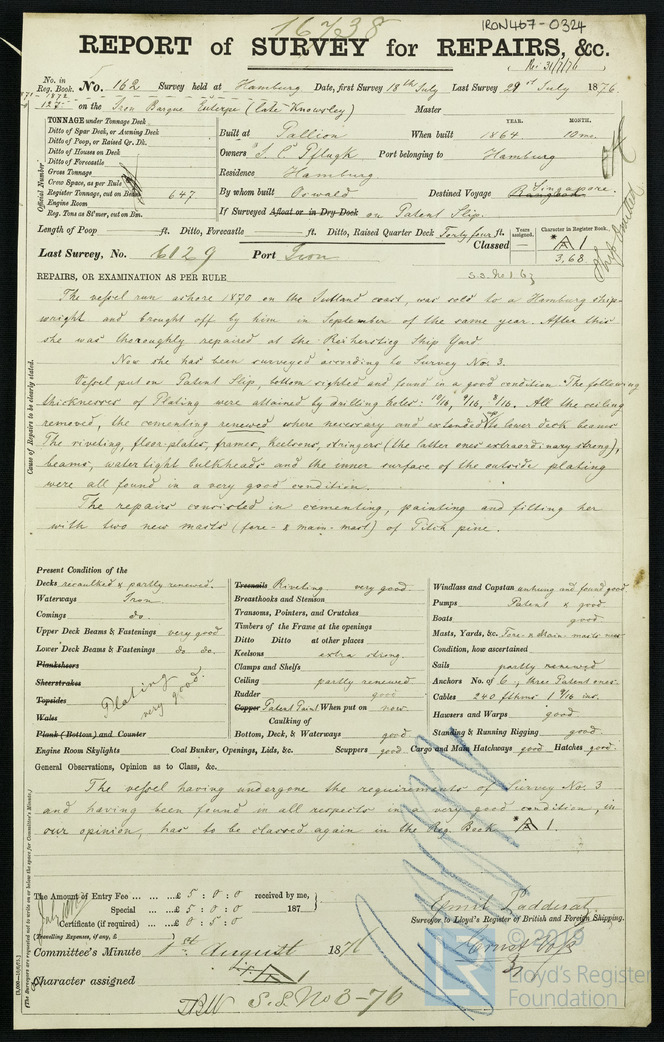 16738
IRON467-0324
REPORT of SURVEY for REPAIRS, &c.
Rec 31/7/76
No. in Reg. Book. No. 162 Survey held at Hamburg Date, first Survey 18th July Last Survey 29th July 1876.
1872
127 on the Iron Barque Euterpe (late Knowsley) Master
TONNAGE under Tonnage Deck
Ditto of Spar Deck, or Awning Deck
Ditto of Poop, or Raised Qr. Dk.
Ditto of Houses on Deck
Ditto of Forecastle
Gross Tonnage
Crew Space, as per Rule
Register Tonnage, cut on Beam 647
Engine Room
Reg. Tons as St'mer, cut on Bm.
Official Number
YEAR. MONTH.
Built at Pallion When built 1864 10 mo.
Owners S. C. Pflugk Port belonging to Hamburg
Residence Hamburg.
By whom built Oswald Destined Voyage Bangkok Singapore.
If Surveyed Afloat or in Dry Dock on Patent Slip.
Length of Poop ft. Ditto, Forecastle ft. Ditto, Raised Quarter Deck Forty four ft.
Classed
Years assigned:—
Character in Register Book.
* A 1
3,68
Last Survey, No. 6129 Port Iron
S.S. No. 1 63
REPAIRS, OR EXAMINATION AS PER RULE
The vessel run ashore 1870 on the Jutland coast, was sold to a Hamburg ship-
wright and brought off by him in September of the same year. After this
she was thoroughly repaired at the Reiherstieg Ship Yard.
Now she has been surveyed according to Survey No. 3.
Vessel put on Patent Slip, bottom sighted and found in a good condition. The following
thicknesses of Plating were attained by drilling holes: 10/16, 9/16, 8/16. All the ceiling
removed, the cementing renewed where necessary and extended up to lower deck beams
The riveting, floor-plates, frames, keelsons, stringers (the latter ones extraordinary strong),
beams, water tight bulkheads and the inner surface of the outside plating
were all found in a very good condition.
The repairs consisted in cementing, painting and fitting her
with two new masts (fore- & main-mast) of Pitch pine.
Cause of Repairs to be clearly stated.
Present Condition of the
Decks recaulked & partly renewed.
Waterways Iron
Comings do.
Upper Deck Beams & Fastenings very good
Lower Deck Beams & Fastenings do. do.
Planksheers
Sheerstrakes
Topsides
Wales
Plank (Bottom) and Counter
Plating very good.
Engine Room Skylights Coal Bunker, Openings, Lids, &c. Scuppers good Cargo and Main Hatchways good Hatches good.
Treenails Riveting very good.
Breasthooks and Stemson
Transoms, Pointers, and Crutches
Timbers of the Frame at the openings
Ditto Ditto at other places
Keelsons extra strong.
Clamps and Shelfs
Ceiling partly renewed.
Rudder good
Copper Patent Paint When put on now.
Caulking of
Bottom, Deck, & Waterways good.
Windlass and Capstan unhung and found good.
Pumps Patent & good.
Boats good
Masts, Yards, &c. Fore- & Main-masts new
Condition, how ascertained
Sails partly renewed
Anchors No. of 6, three Patent ones.
Cables 240 fthms 1 9/16 ins.
Hawsers and Warps good.
Standing & Running Rigging good.
General Observations, Opinion as to Class, &c.
The vessel having undergone the requirements of Survey No. 3
and having been found in all respects in a very good condition, in
our opinion, has to be classed again in the Reg. Book * A 1.
The Amount of Entry Fee ... ... £ 5 : 0 : 0 received by me,
Special ... ... £ 5 : 0 : 0 187
Certificate (if required) ... £ 0 : 5 : 0
(Travelling Expenses, if any, £
Surveyor to Lloyd's Register of British and Foreign Shipping.
Committee's Minute 1st August 1876
Character assigned
S.S. No 3-76
© 2019
LR
Lloyd's Register
Foundation